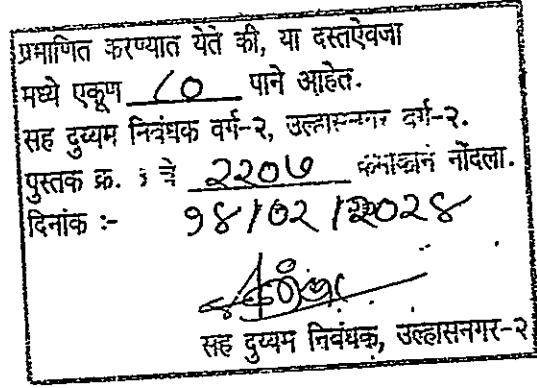 प्रमाणित करण्यात येते की, या दस्तऐवजा
मध्ये एकूण ८० पाने आहेत.
सह दुय्यम निबंधक वर्ग-२, उल्हासनगर वर्ग-२.
पुस्तक क्र. १ चे २२०७ क्रमांकाने नोंदला.
दिनांक :- १४/०२/२०२४
सह दुय्यम निबंधक, उल्हासनगर-२